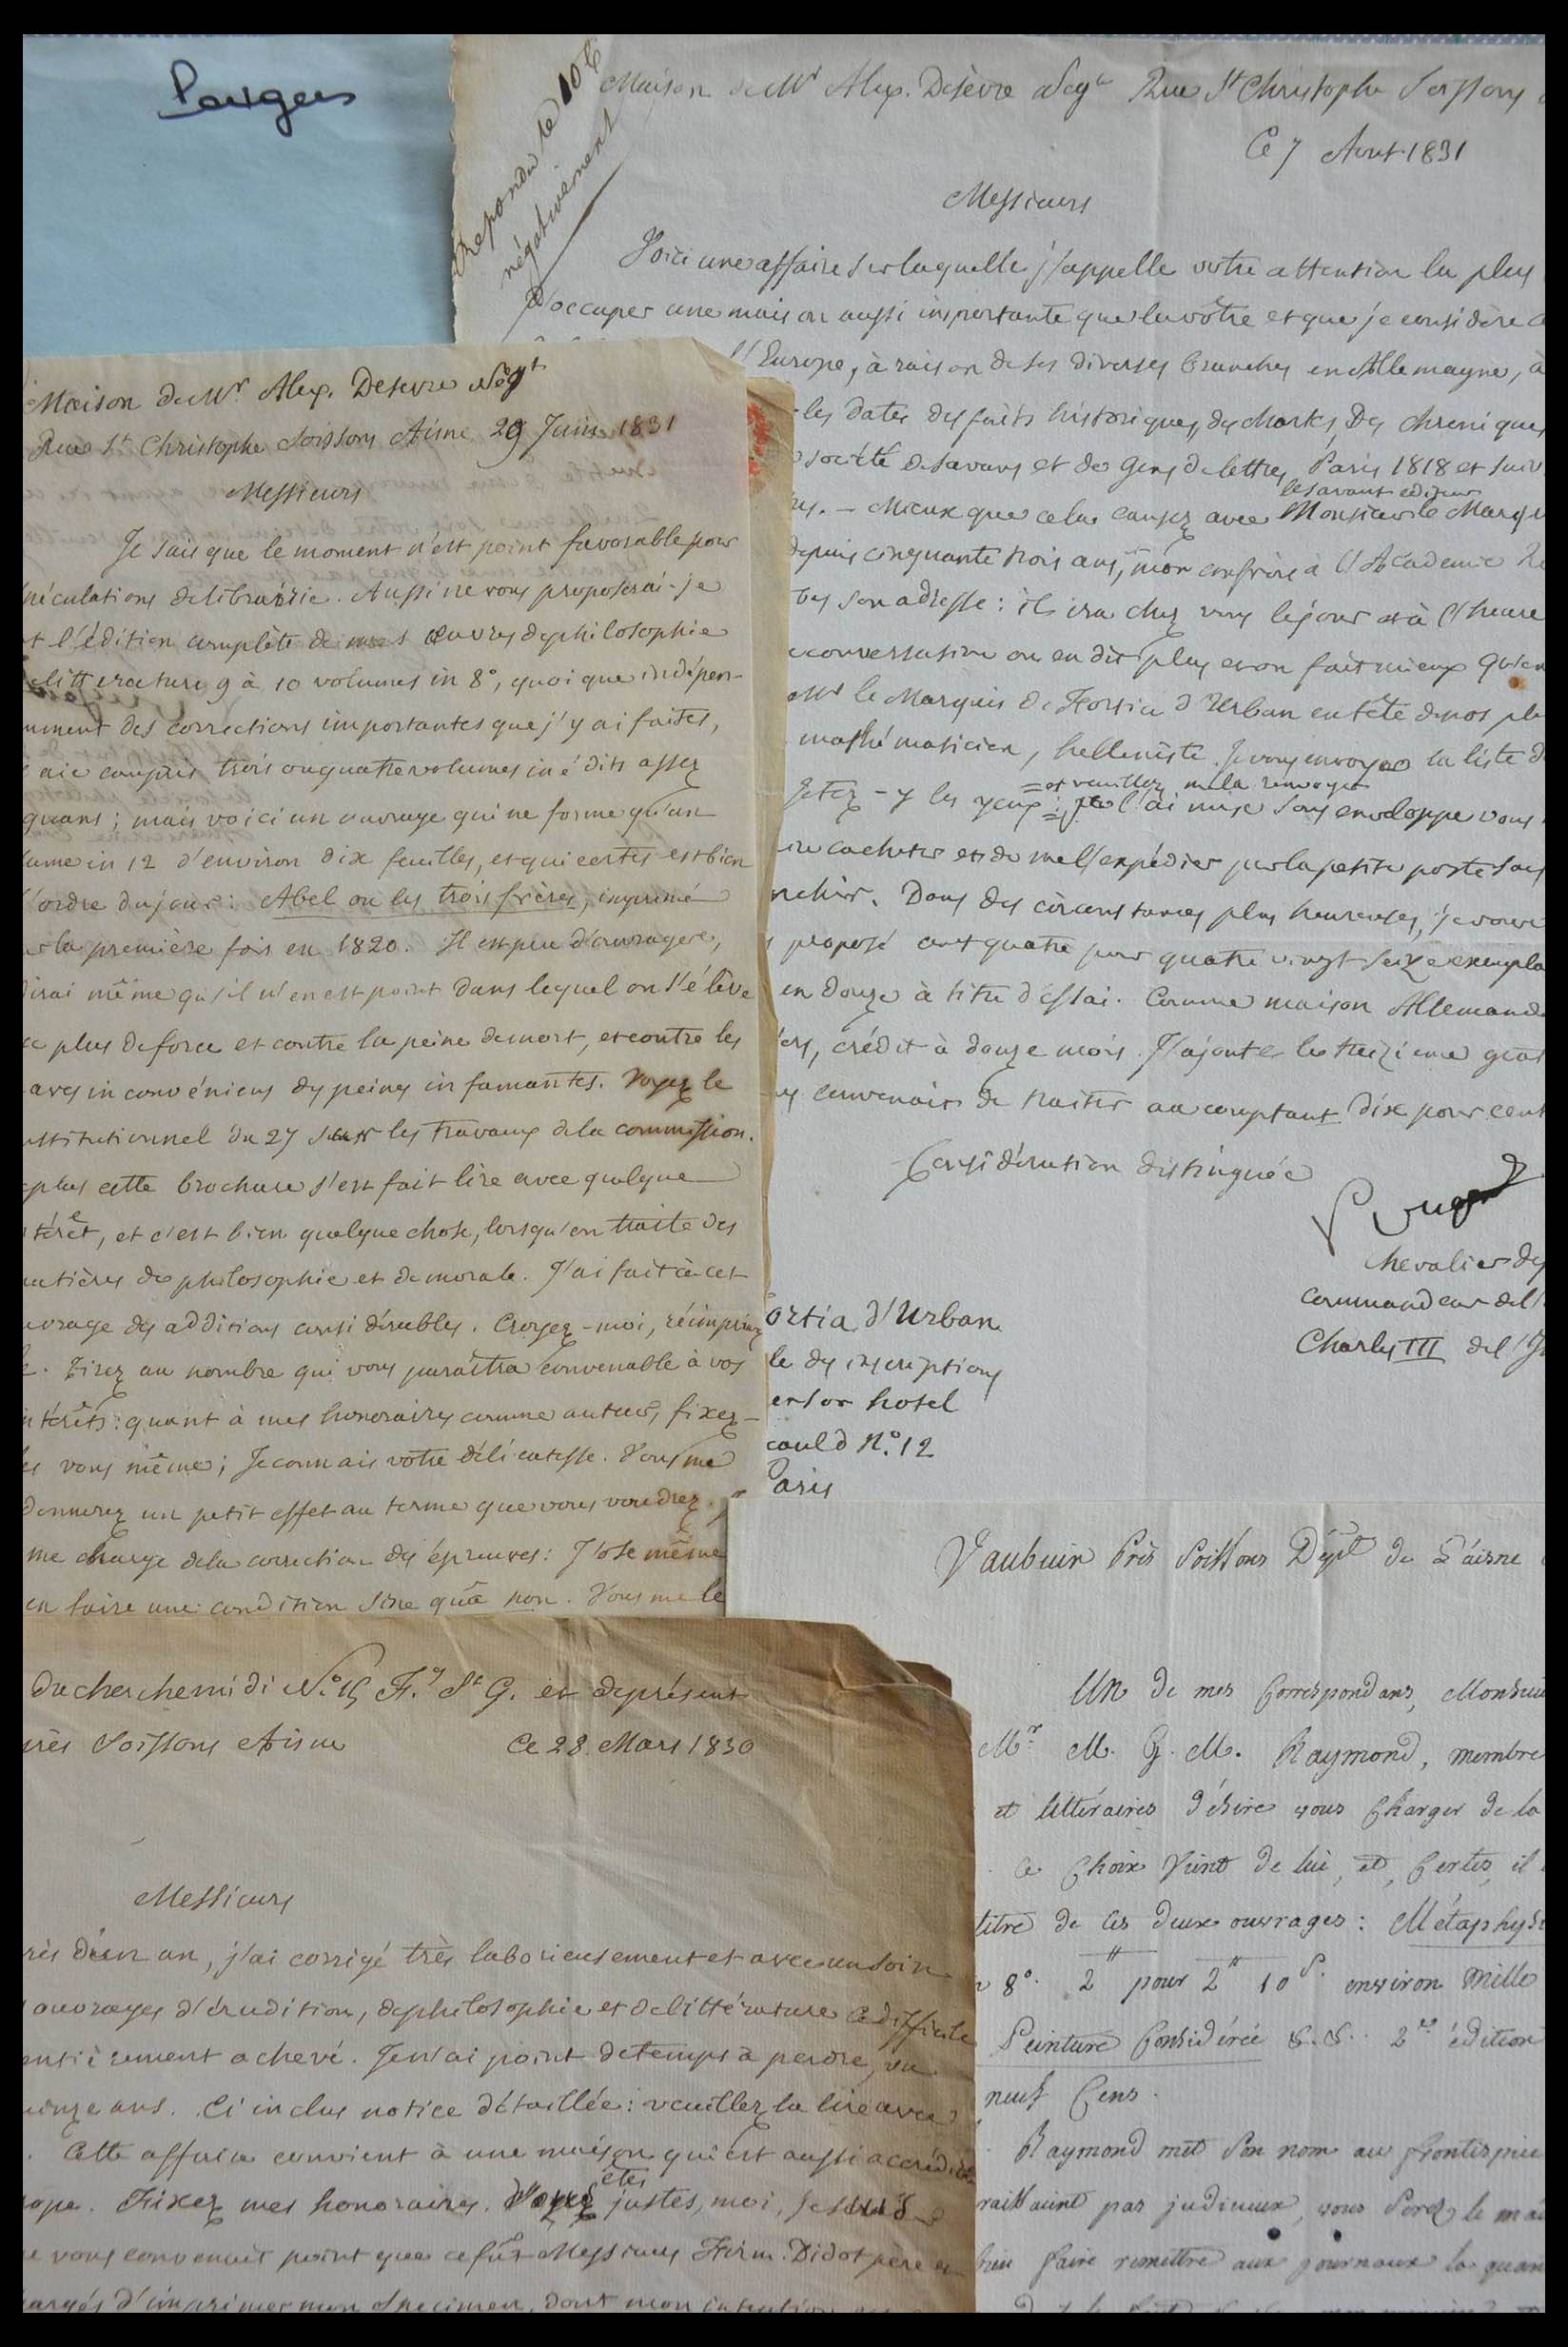 Pougens
Repondu le 10 8
négativement
Maison de Mr Alex. Desèvre Negt Rue St Christophe Soissons
Ce 7 Aout 1831
Messieurs
Voici une affaire sur laquelle j'appelle votre attention la plus
d'occuper une maison aussi importante que la vôtre et que je considère
l'Europe, à raison de ses diverses branches en Allemagne, à
les dates des faits historiques, des chartes, Des chroniques
société de savans et de Gens de lettres, Paris 1818 et suiv
le savant éditeur
. - Mieux que cela causez avec Monsieur le Marqu
depuis cinquante trois ans, mon confrère à l'Académie
son adresse : il ira chez vous le jour et à l'heure
conversation on en dit plus et on fait mieux qu'en
Mr le Marquis de Fortia d'Urban en tête de nos pl
mathématicien, helleniste. Je vous envoye la liste d
= et veuillez me la renvoyer
Jetez-y les yeux := je l'ai mise sous enveloppe vous
cacheter et de me l'expédier par la petite poste sans
nchir. Dans des circonstances plus heureuses, je vous
proposé cent quatre pour quatre vingt seize exempla
en douze à titre d'essai. Comme maison Allemand
ers, crédit à douze mois. J'ajoute le treizieme grat
convenait de traiter au comptant dix pour cent
Considération distinguée
Pougens
Chevalier de
Commandeur de l'
Charles III de l'
ortia d'Urban
ie des inscriptions
en son hotel
cauld N.° 12
Paris
Maison de Mr Alex. Desevre Negt
Rue St Christophe Soissons Aisne 29 Juin 1831
Messieurs
Je sais que le moment n'est point favorable pour
spéculations de librairie. Aussi ne vous proposerai-je
t l'édition complète de mes œuvres de philosophie
litterature 9 à 10 volumes in 8°, quoique indépen-
mment des corrections importantes que j'y ai faites,
aie compris trois ou quatre volumes inédits assez
quans ; mais voici un ouvrage qui ne forme qu'un
lume in 12 d'environ dix feuilles, et qui certes est bien
l'ordre du jour : Abel ou les trois frères, imprimé
la première fois en 1820. Il est peu d'ouvrages,
dirai même qu'il n'en est point dans lequel on s'élève
c plus de force et contre la peine de mort, et contre les
aves inconvéniens des peines infamantes. Voyez le
nstitutionnel du 27 sur les travaux de la commission.
plus cette brochure s'est fait lire avec quelque
térêt, et c'est bien quelque chose, lorsqu'on traite des
matières de philosophie et de morale. J'ai fait à cet
uvrage des additions considérables. Croyez-moi, réimprimez
. Tirez au nombre qui vous paraîtra convenable à vos
ntérêts : quant à mes honoraires comme auteur, fixez-
les vous même ; Je connais votre délicatesse. Vous me
donnerez un petit effet au terme que vous voudrez.
me charge de la correction des épreuves : J'ose même
en faire une condition sine quâ non. Vous me le
du cherchemidi N.° 15 F.g St G. et deprésent
près Soissons Aisne Ce 28 Mars 1830
Messieurs
rès d'un an, j'ai corrigé très laborieusement et avec un soin
ouvrages d'érudition, de philosophie et de littérature. Ce difficile
entièrement achevé. Je n'ai point de temps à perdre, vu
inze ans. Ci inclus notice détaillée : veuillez la lire avec
. Cette affaire convient à une maison qui est aussi accrédi
êtes
ope. Fixez mes honoraires. Vous justes, moi, je suis
e vous convenait point que ce fût Messieurs Firm. Didot père et
argés d'imprimer mon Specimen, dont mon intention
Vaubuin Près Soissons Dépt de L'aisne
Un de mes Correspondans, Monsieur
Mr. M. G. M. Raymond, membre
et littéraires désire vous Charger de la
Ce Choix Vient de lui, et, Certes, il
titre de ces deux ouvrages : Métaphys
8°. 2 # pour 2 # 10 s. environ Mille
Peinture Considérée &.&. 2de édition
neuf Cens.
Raymond met Son nom au frontispice
raissaient pas judicieux, vous Serez le ma
bien faire remettre aux journaux la quan